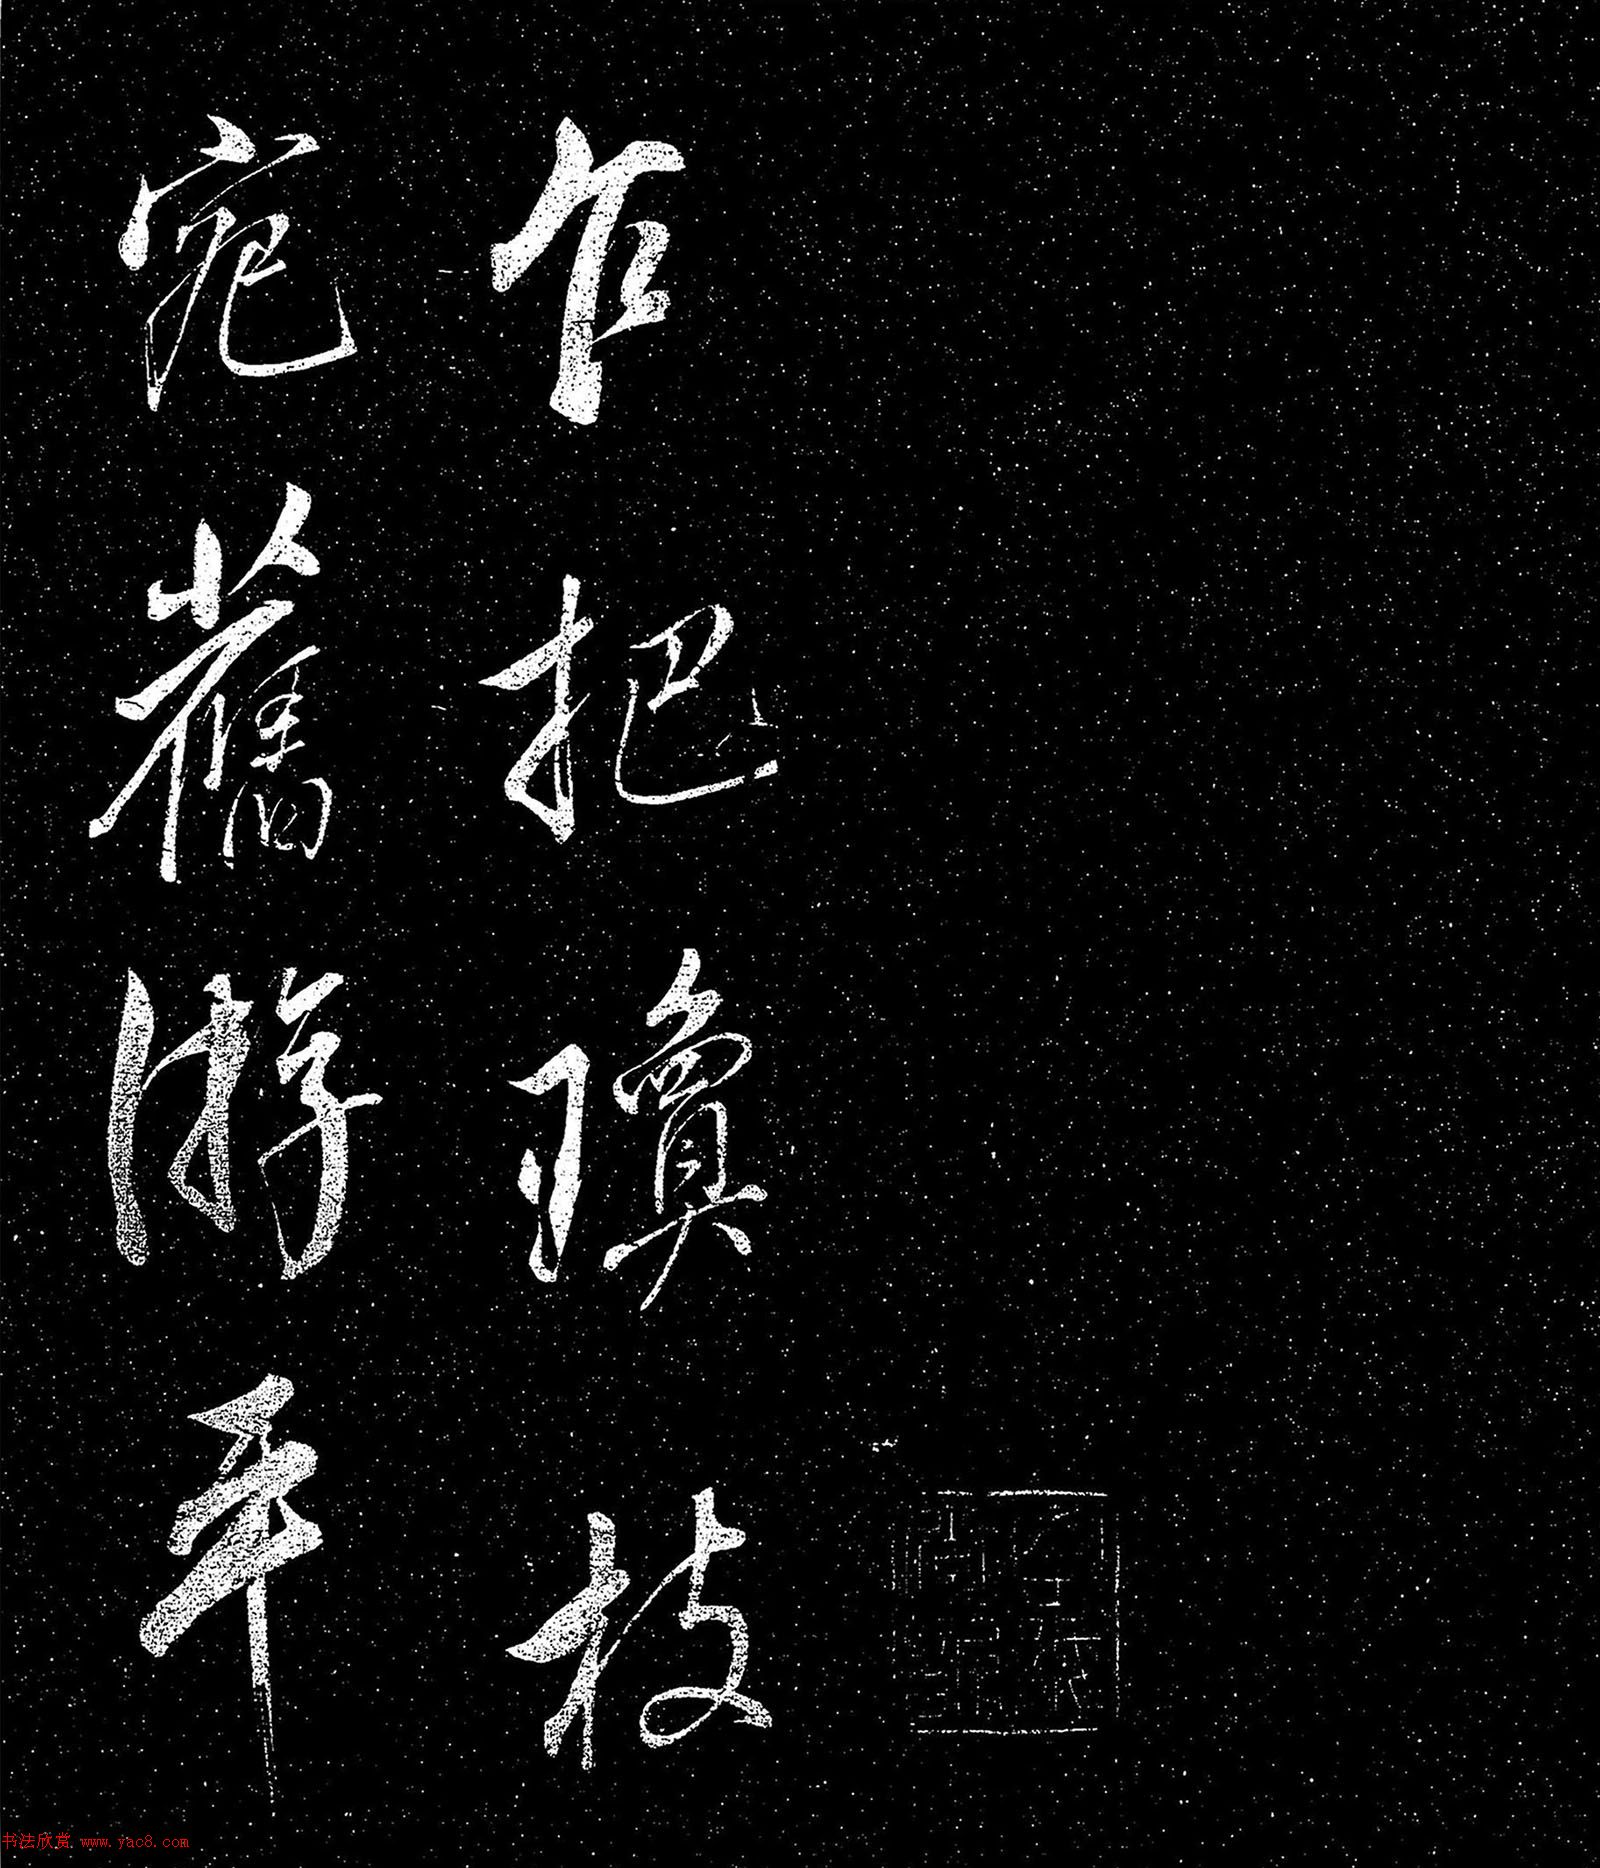 乍把瓊枝
宛舊游平
书法欣赏 www.yac8.com